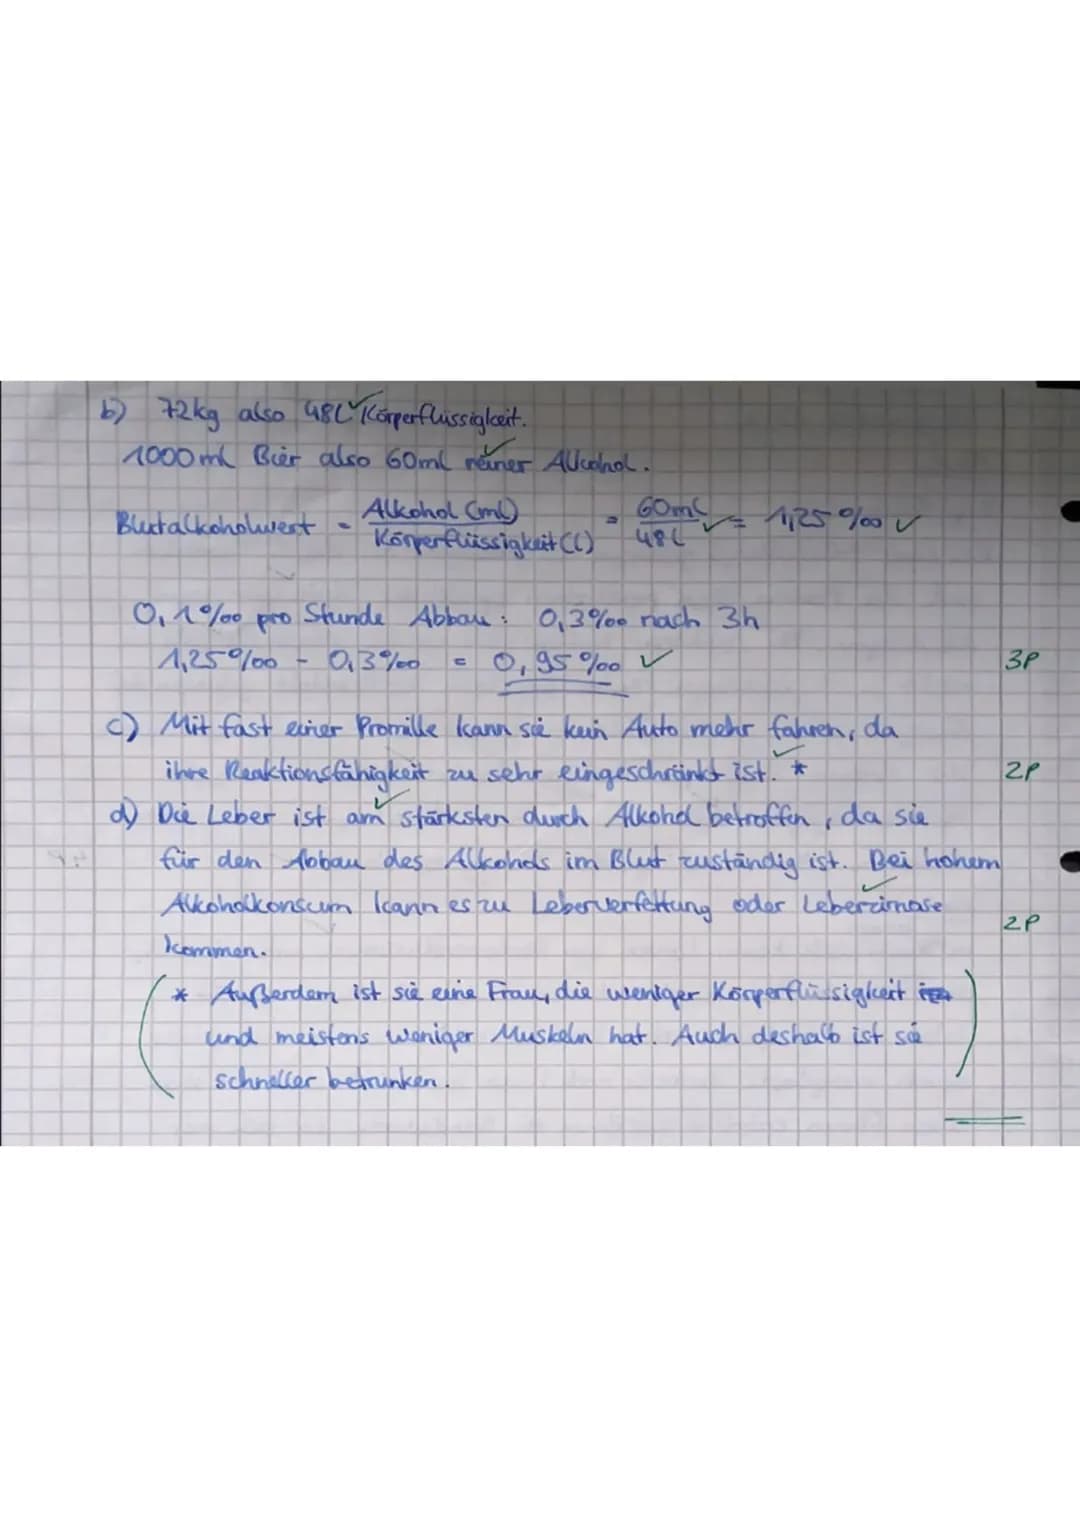 b) 72kg also 48l Körperflüssigkeit.
1000ml Bier also 60ml reiner Alkohol.
Blutalkoholwert = Alkohol (ml) / Körperflüssigkeit (l) = 60ml / 48l = 1,25‰
0,1‰ pro Stunde Abbau: 0,3‰ nach 3h
1,25‰ - 0,3‰ = 0,95‰ 3P
c) Mit fast einer Promille kann sie kein Auto mehr fahren, da
ihre Reaktionsfähigkeit zu sehr eingeschränkt ist. * 2P
d) Die Leber ist am stärksten durch Alkohol betroffen, da sie
für den Abbau des Alkohols im Blut zuständig ist. Bei hohem
Alkoholkonsum kann es zu Leberverfettung oder Leberzirrose 2P
kommen.
* Außerdem ist sie eine Frau, die weniger Körperflüssigkeit
und meistens weniger Muskeln hat. Auch deshalb ist sie
schneller betrunken.